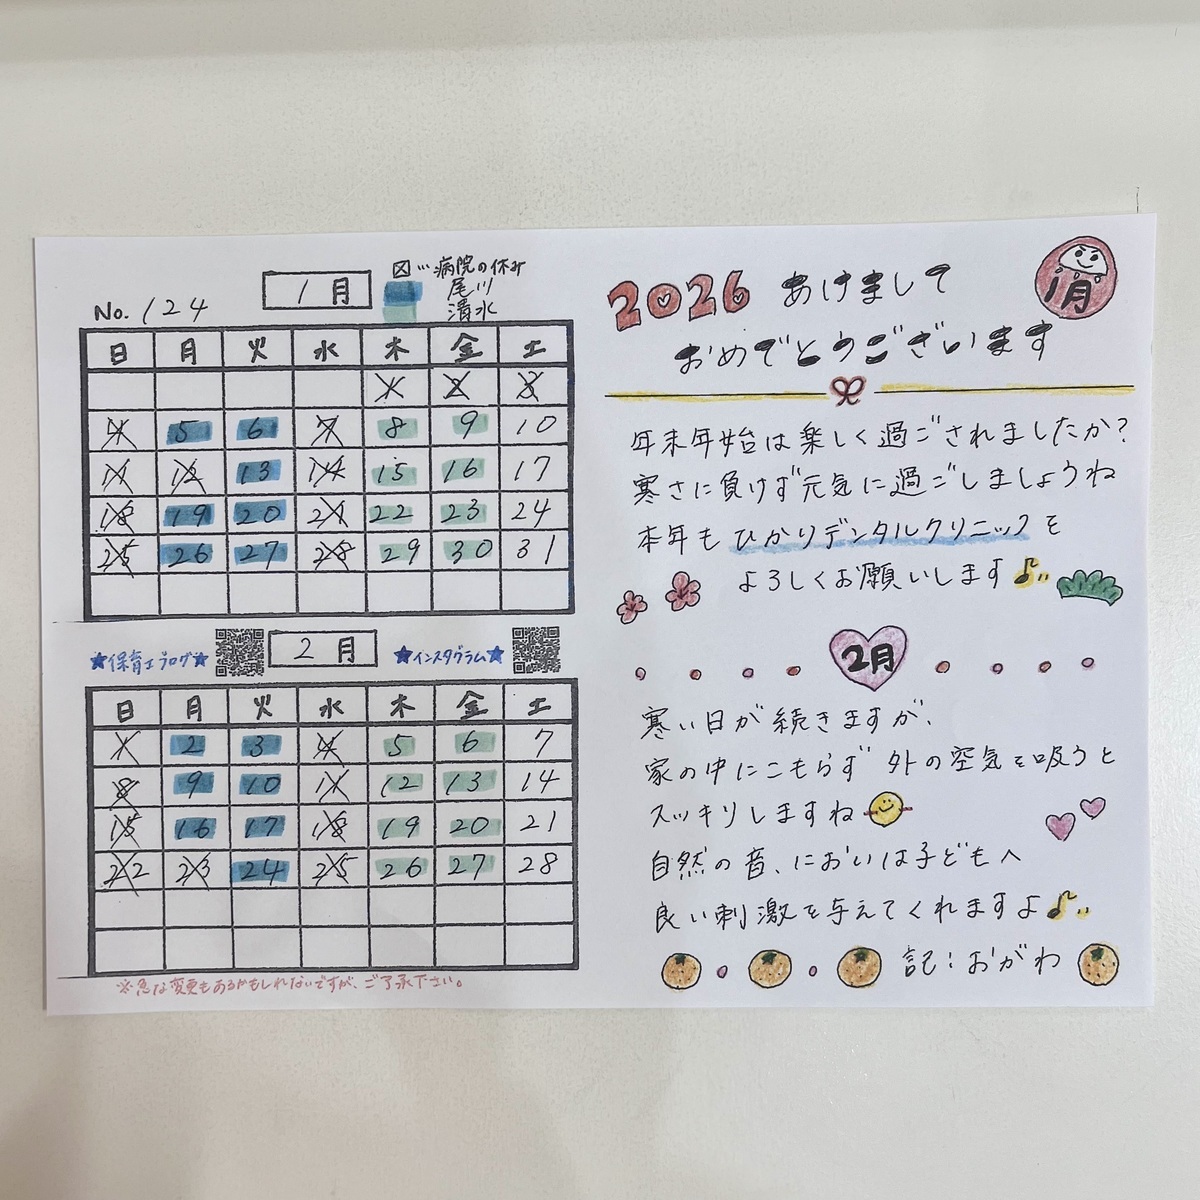 No. 124
1月
☒…病院の休み
尾川
清水
日 月 火 水 木 金 土
1 2 3
4 5 6 7 8 9 10
11 12 13 14 15 16 17
18 19 20 21 22 23 24
25 26 27 28 29 30 31
★保育士ブログ★
2月
★インスタグラム★
日 月 火 水 木 金 土
1 2 3 4 5 6 7
8 9 10 11 12 13 14
15 16 17 18 19 20 21
22 23 24 25 26 27 28
※急な変更もあるかもしれないですが、ご了承下さい。
2026 あけまして
おめでとうございます
1月
年末年始は楽しく過ごされましたか?
寒さに負けず元気に過ごしましょうね
本年もひかりデンタルクリニックを
よろしくお願いします♪
2月
寒い日が続きますが、
家の中にこもらず外の空気を吸うと
スッキリしますね
自然の音、においは子どもへ
良い刺激を与えてくれますよ♪
記:おがわ